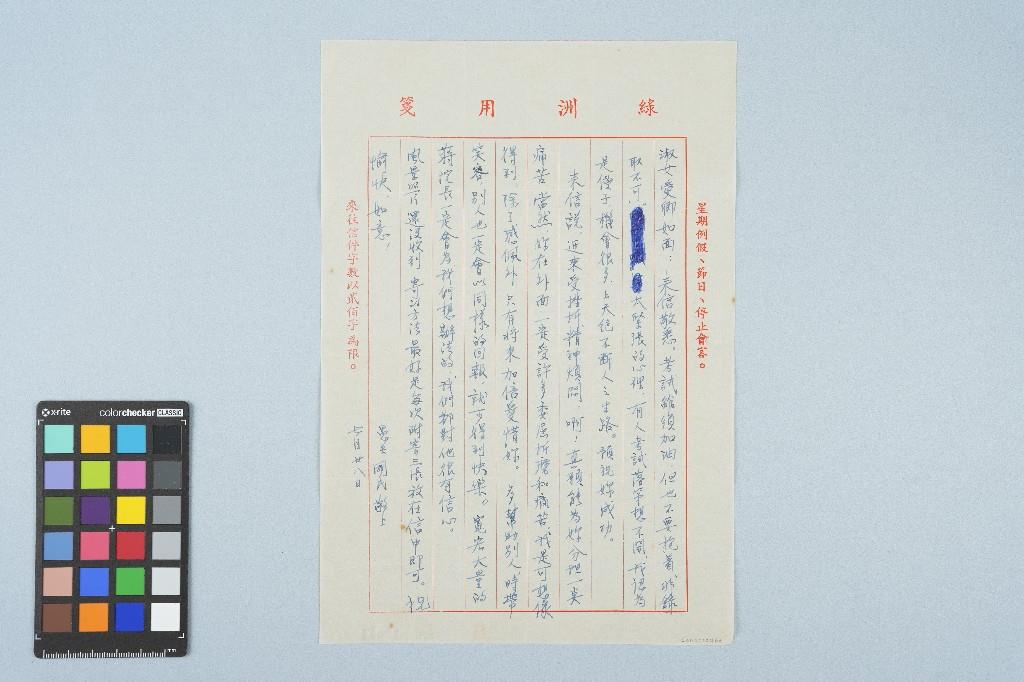 綠洲用箋
星期例假、節日、停止會客。
淑女愛卿如面：來信敬悉。考試雖須加油 但也不要抱著非錄
取不可 太緊張的心理，有人考試落第想不開，我認為
是傻子 機會很多，上天絕不斷人之生路。預祝妳成功。
來信說，近來受挫折精神煩悶，啊！真願能為妳分担一点
痛苦 當然，妳在外面一定受許多委屈折磨和痛苦，我是可想像
得到，除了感佩外 只有將來加倍愛惜妳。多幫助別人，時帶
笑容，別人也一定會以同樣的回報，就可得到快樂。寬宏大量的
蔣院長一定會為我們想辦法的，我們都對他很有信心。
風景照片還沒收到 寄法方法最好是每次附寄三張放在信中即可。祝
愉快、如意！
愚夫 國民 敬上
七月廿八日
來往信件字數以貳佰字為限。
x-rite
colorchecker CLASSIC